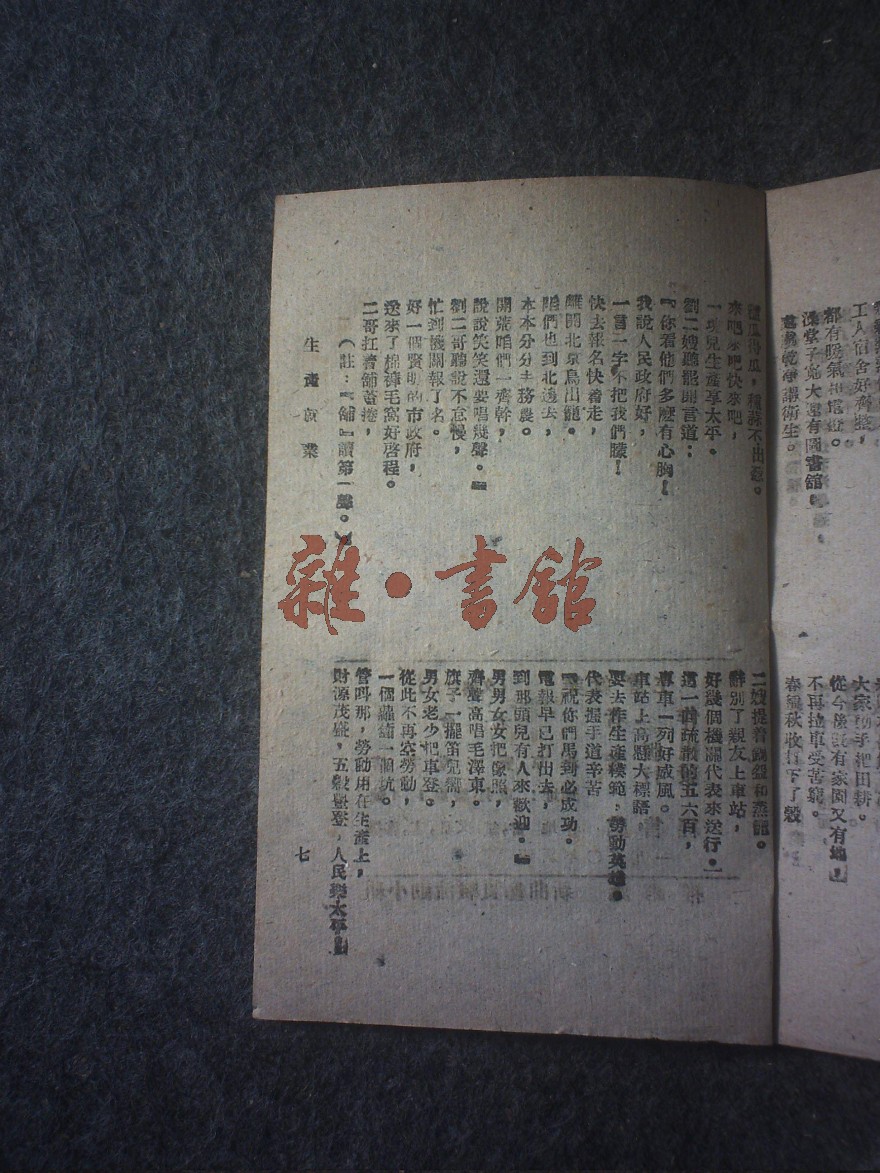 工人宿舍好齊整，
都有暖氣和電燈。
澡堂子寬大還有圖書館，
講衛生。
大家動手把田耕。
從今後既有家園又有地，
不再拉車受苦窮。
春種秋收打下了穀
種瓜得瓜，種蒜不出葱。
來吧來吧快來吧，
一塊兒生產享太平。
劉二嫂聽罷開言道：
『你看他們多麼有心胸！
我說人民政府好，
一言一字不把我們矇！
快去報名快着走，
離開北京鳥出籠。
咱們也到北邊去，
本本分分去務農。
開荒咱們一齊幹，
說說笑笑還要唱幾聲。』
劉二哥聽說不怠慢，
忙到機關報了名。
好一個賢明的市政府，
送來了棉褲毛窩好啓程。
二哥扛着舖蓋捲，
（註：『舖』讀第一聲。）
二嫂提着鍋盔和蒸籠。
辭別了親友上車站，
好幾個機關代表來送行。
這一個疏散的五六百，
專車一列好威風。
車站上高懸大標語
要去作生產模範，勞動英雄。
代表握手道辛苦
『祝你們馬到必成功。
電報早已打出去，
到那頭兒有人來歡迎。』
男男女女把像照，
齊聲高唱毛澤東。
旗子一擺笛兒響，
男女老少把車登。
從此不再空勞動，
一個蘿蔔一個坑。
管叫那，勞動用在生產上，
財源茂盛，五穀豐登，人民樂太平！
生產就業
七
雜·書館